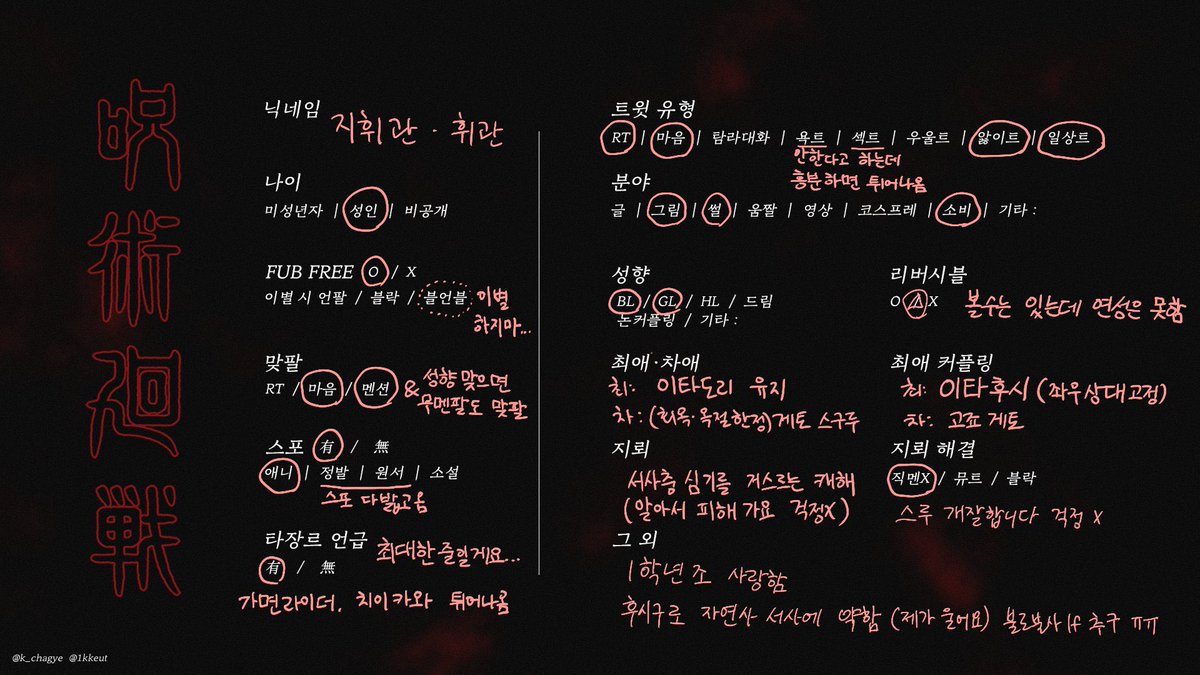 呪術廻戦
닉네임 지휘관 · 휘관
나이
미성년자 | 성인 | 비공개
FUB FREE O / X
이별 시 언팔 / 블락 / 블언블 이별
하지마...
맞팔
RT / 마음 / 멘션 & 성향 맞으면
무멘팔도 맞팔
스포 有 / 無
애니 | 정발 | 원서 | 소설
스포 다밟고옴
타장르 언급 최대한 줄일게요...
有 / 無
가면라이더, 치이카와 튀어나옴
트윗 유형
RT | 마음 | 탐라대화 | 욕트 | 섹트 | 우울트 | 앓이트 | 일상트
안한다고 하는데
흥분하면 튀어나옴
분야
글 | 그림 | 썰 | 움짤 | 영상 | 코스프레 | 소비 | 기타 :
성향
BL / GL / HL / 드림
논커플링 / 기타 :
리버시블
O △ X 볼수는 있는데 연성은 못함
최애·차애
최: 이타도리 유지
차: (회옥·옥절한정) 게토 스구루
최애 커플링
최: 이타후시 (좌우상대고정)
차: 고죠게토
지뢰
서사충 심기를 거스르는 캐해
(알아서 피해가요 걱정X)
지뢰 해결
직멘X / 뮤트 / 블락
스루 개잘합니다 걱정 X
그 외
1학년조 사랑함
후시구로 자연사 서사에 약함 (제가 울어요) if 추구 ㅠㅠ
@k_chagye @1kkeut